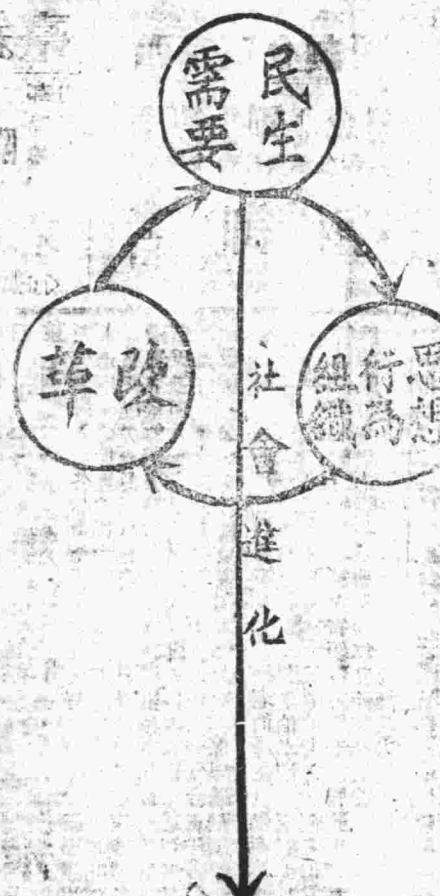 民生
需要
思想
行為
組織
改革
社會進化